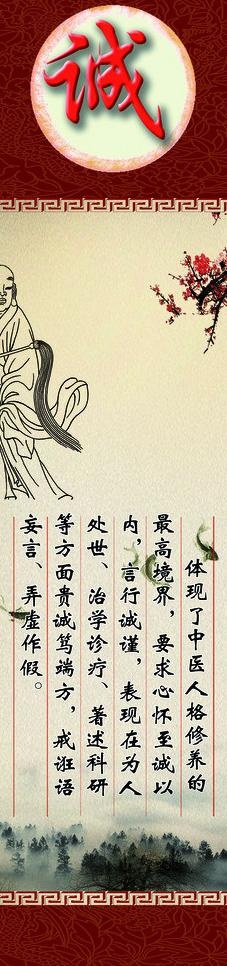 诚
体现了中医人格修养的
最高境界，要求心怀至诚以
内，言行诚谨，表现在为人
处世、治学诊疗、著述科研
等方面贵诚笃端方，戒诳语
妄言、弄虚作假。